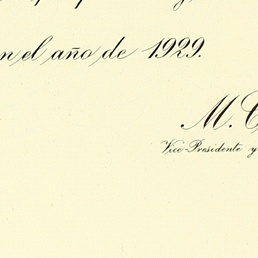 en el año de 1929.
M.
Vice-Presidente y